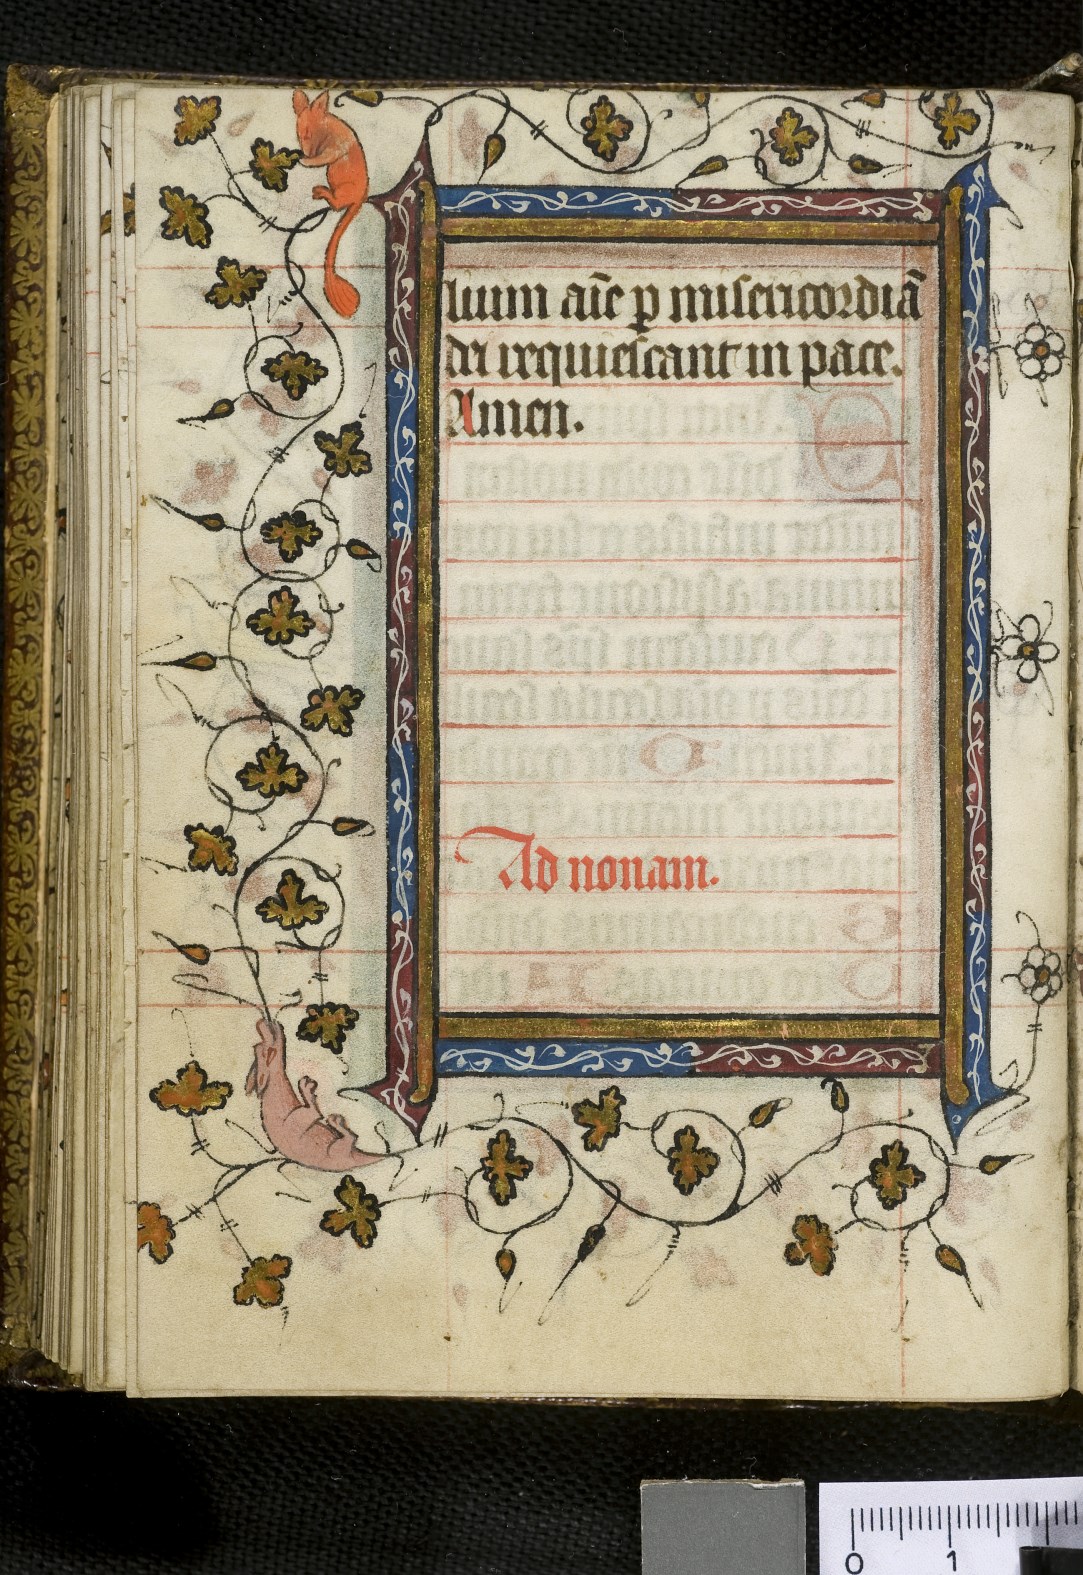 lium aīe p misericordiā
dei requiescant in pace.
Amen.
Ad nonam.
0 1